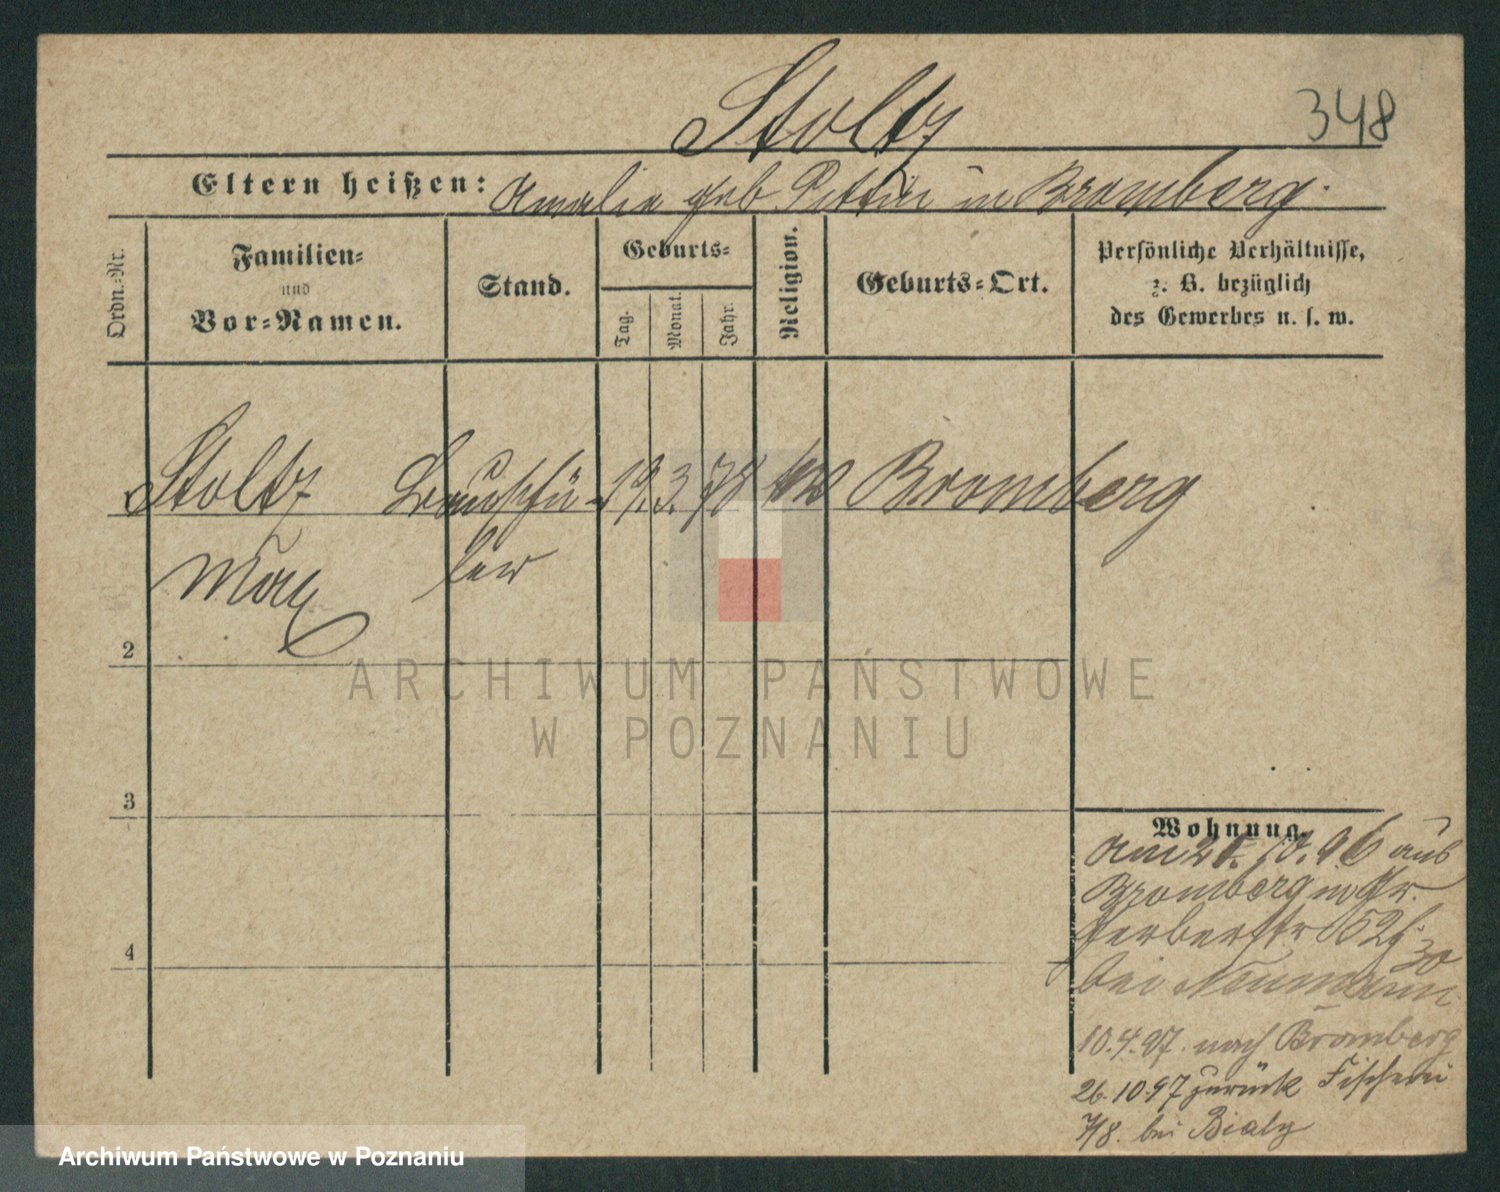 Stoltz
348
Eltern heißen: Amalie geb. in Bromberg.
Ordn.-Nr.
Familien-
und
Vor-Namen.
Stand.
Geburts-
Tag.
Monat.
Jahr.
Religion.
Geburts-Ort.
Persönliche Verhältnisse,
z. B. bezüglich
des Gewerbes u. s. w.
Stoltz Bauschü- 19. 3. 78 Bromberg
Max ler
2
ARCHIWUM PAŃSTWOWE
W POZNANIU
3
Wohnung.
Am 10. 96 aus
Bromberg Gr.
Gerberstr 52
bei Neumann
10.4.97. nach Bromberg
26.10.97 zurück Fischerei
7/8. bei Bialy
4
Archiwum Państwowe w Poznaniu